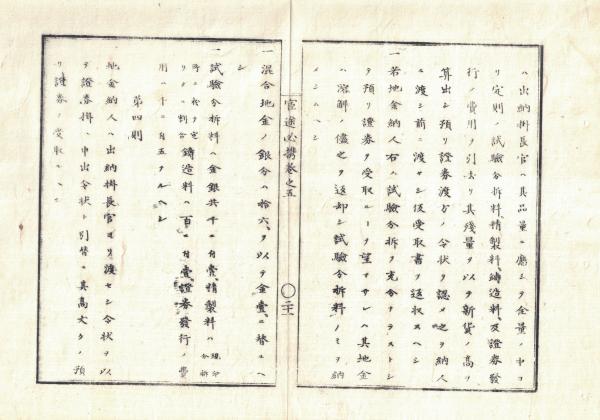 ハ出納掛長官ハ其品量ニ應シテ全量ノ中ヨ
リ定則ノ試驗分拆料精製料鑄造料及證券發
行ノ費用ヲ引去リ其殘量ヲ以テ新貨ノ高ヲ
算出シ預リ證券渡方ノ令狀ヲ認メ之ヲ納人
ニ渡シ前ニ渡セシ假受取書ヲ返收スヘシ
一若地金納人右ハ試驗分拆ヲ充分ナラストシ
ヲ預リ證券ヲ受取ヿヲ望マサレハ其地金
ハ溶解ノ儘之ヲ返却シ試驗分拆料ノミヲ納
メシムヘシ
官途必携巻之五
〇二十
一混合地金ノ銀分ハ拾六ヲ以テ金壹ニ替ユヘ
シ
一試驗分拆料ハ金銀共千ニ付壹精製料ハ
鑄造料ハ百ニ付壹證券發行ノ費
用ハ千ニ付五タルヘシ
第四則
地金納人ハ出納掛長官ヨリ渡セシ令狀ヲ以
テ證券掛ヘ申出令狀ト引替ニ其高丈ケノ預
リ證券ヲ受取ヘシ